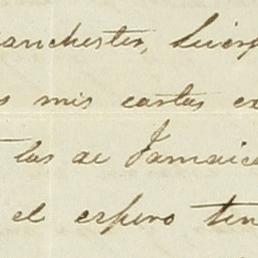 anchester, Liverp
s mis cartas e
las de Jamaica
el espero ten